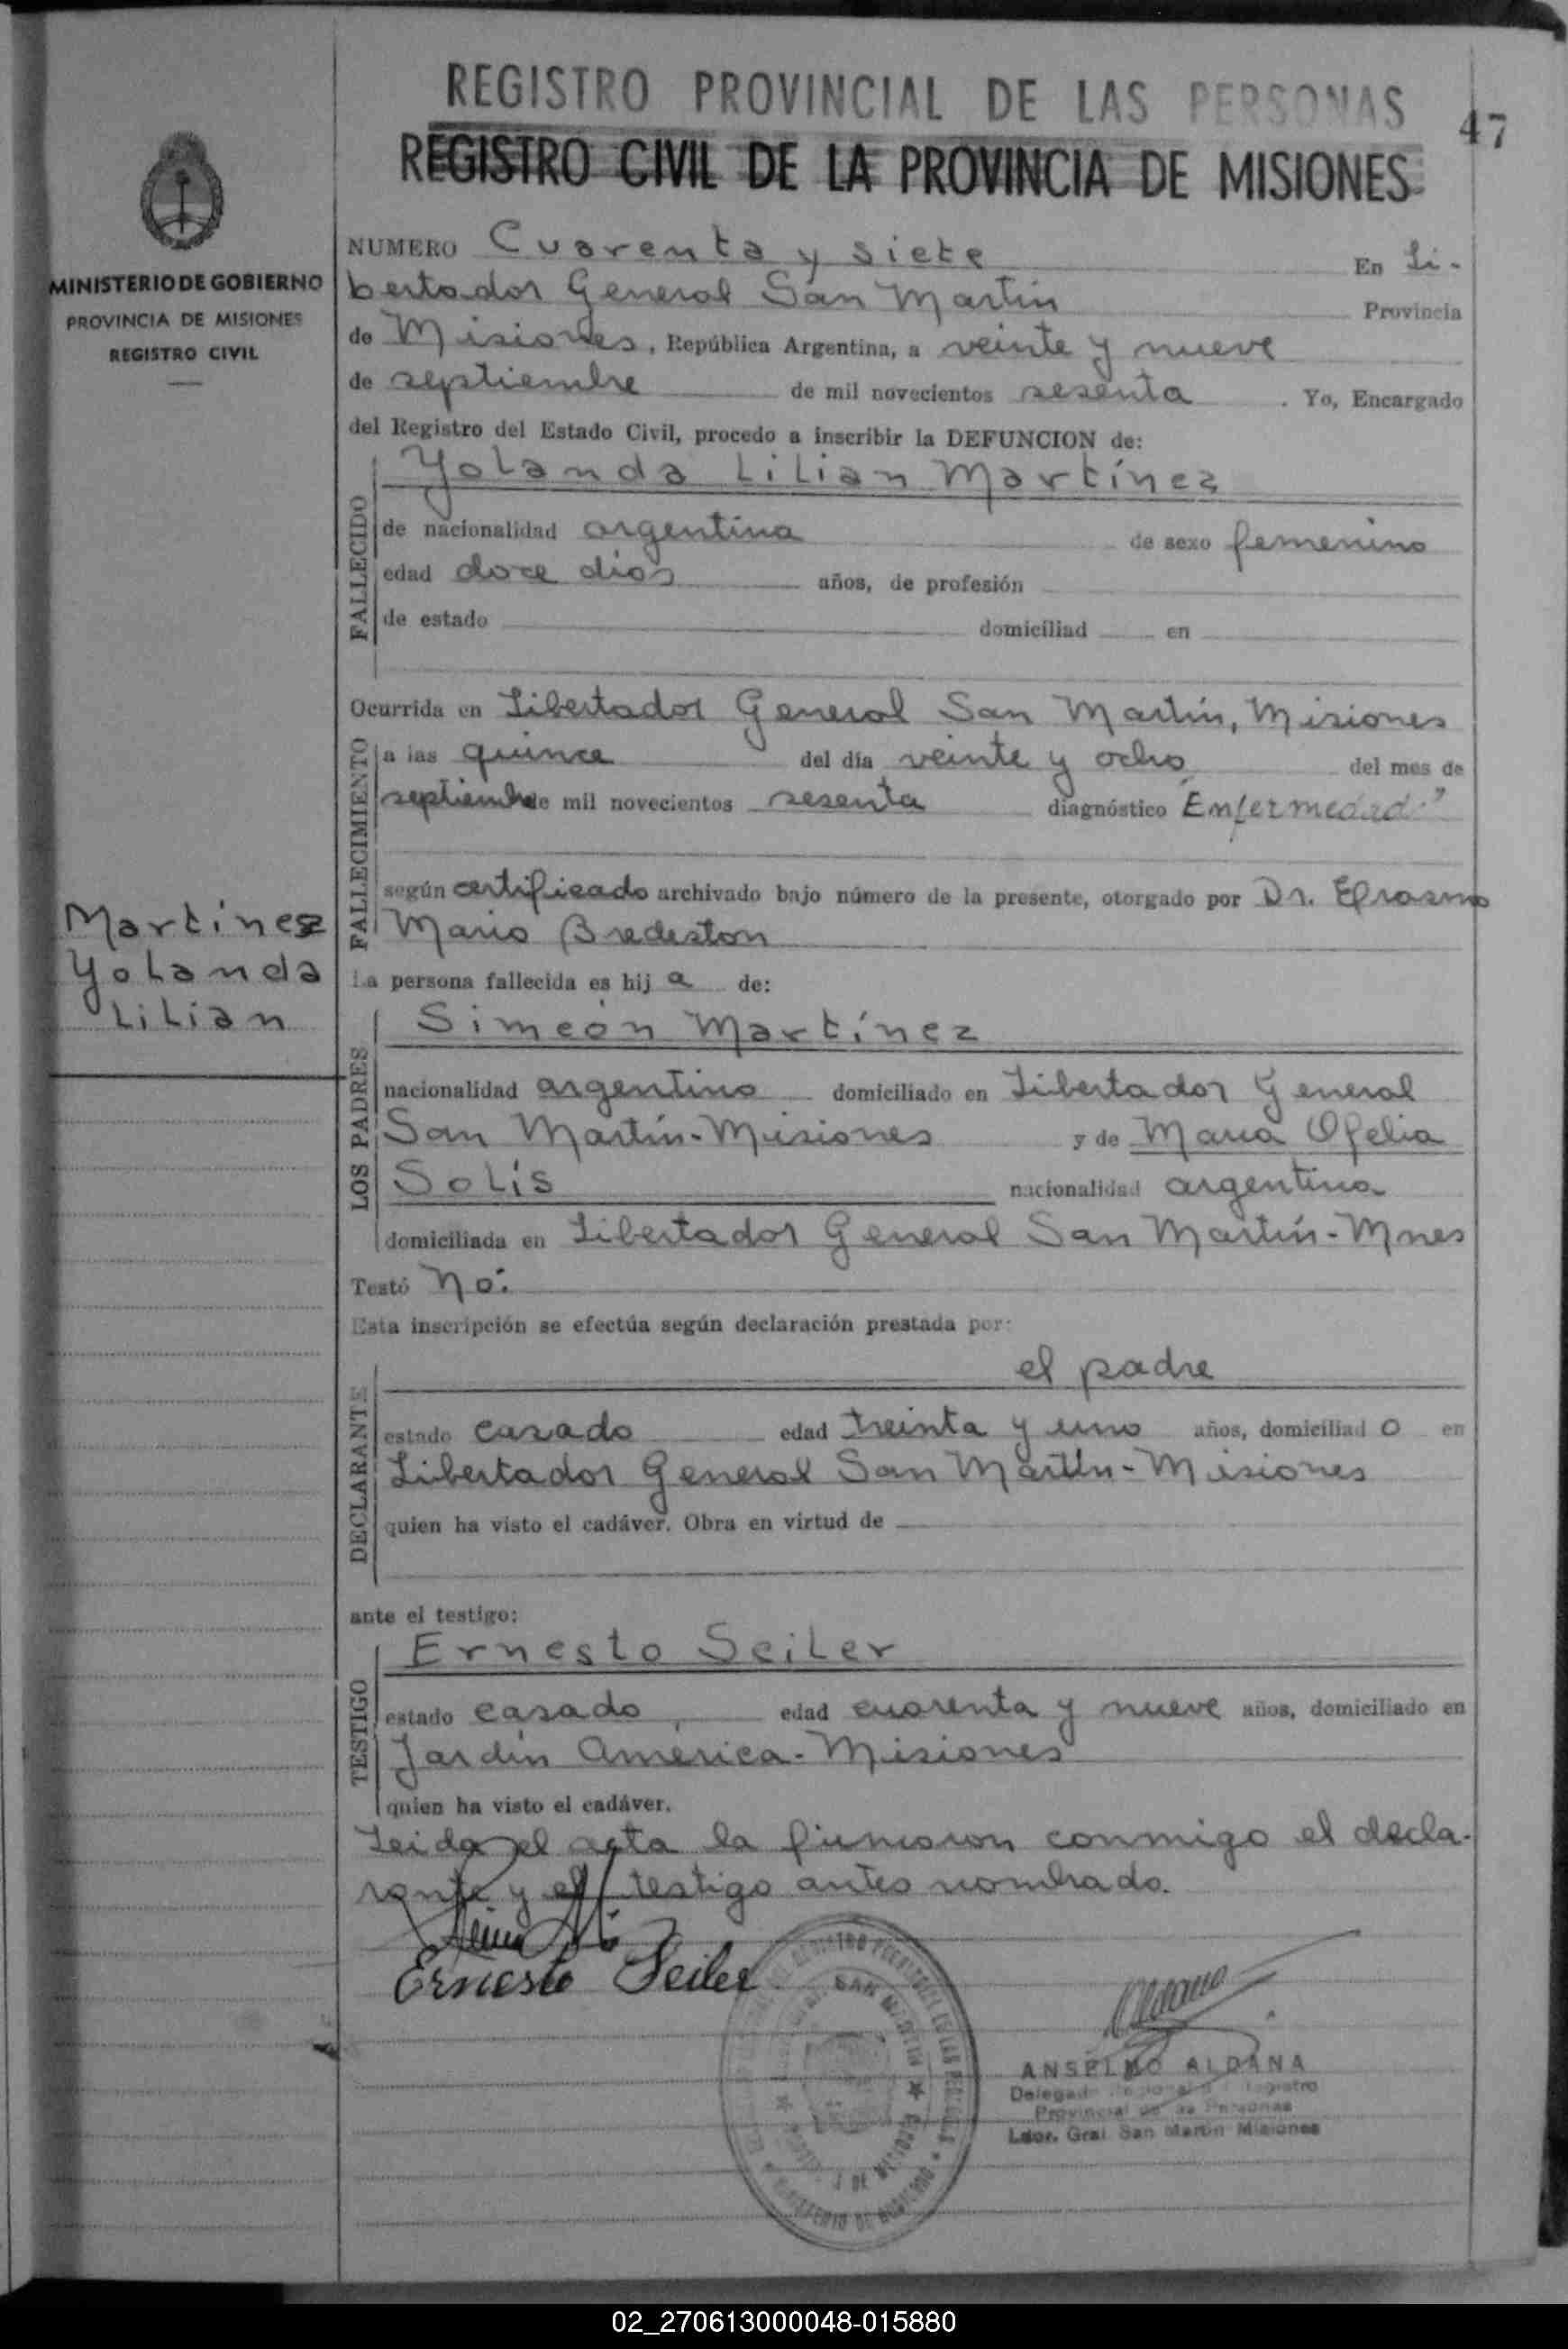 REGISTRO PROVINCIAL DE LAS PERSONAS
47
REGISTRO CIVIL DE LA PROVINCIA DE MISIONES
MINISTERIO DE GOBIERNO
PROVINCIA DE MISIONES
REGISTRO CIVIL
NUMERO Cuarenta y siete En Li-
bertador General San Martín Provincia
de Misiones, República Argentina, a veinte y nueve
de septiembre de mil novecientos sesenta. Yo, Encargado
del Registro del Estado Civil, procedo a inscribir la DEFUNCION de:
FALLECIDO
Yolanda Lilian Martínez
de nacionalidad argentina de sexo femenino
edad doce días años, de profesión
de estado domiciliad en
Ocurrida en Libertador General San Martín, Misiones
FALLECIMIENTO
a las quince del día veinte y ocho del mes de
septiembre de mil novecientos sesenta diagnóstico "Enfermedad"
según certificado archivado bajo número de la presente, otorgado por Dr. Erasmo
Mario Bredeston
Martínez
Yolanda
Lilian
La persona fallecida es hij a de:
LOS PADRES
Simeón Martínez
nacionalidad argentino domiciliado en Libertador General
San Martín-Misiones y de María Ofelia
Solís nacionalidad argentina
domiciliada en Libertador General San Martín-Mnes
Testó No.
Esta inscripción se efectúa según declaración prestada por:
DECLARANTE
el padre
estado casado edad treinta y uno años, domiciliad o en
Libertador General San Martín-Misiones
quien ha visto el cadáver. Obra en virtud de
ante el testigo:
TESTIGO
Ernesto Seiler
estado casado, edad cuarenta y nueve años, domiciliado en
Jardín America-Misiones
quien ha visto el cadáver.
Leida el acta la firmaron conmigo el decla-
rante y el testigo antes nombrado.
Ernesto Seiler
SAN MARTIN
MINISTERIO DE GOBIERNO
ANSELMO ALDANA
Delegado Regional Registro
Provincial de las Personas
Ldor. Gral San Martín Misiones
02_270613000048-015880